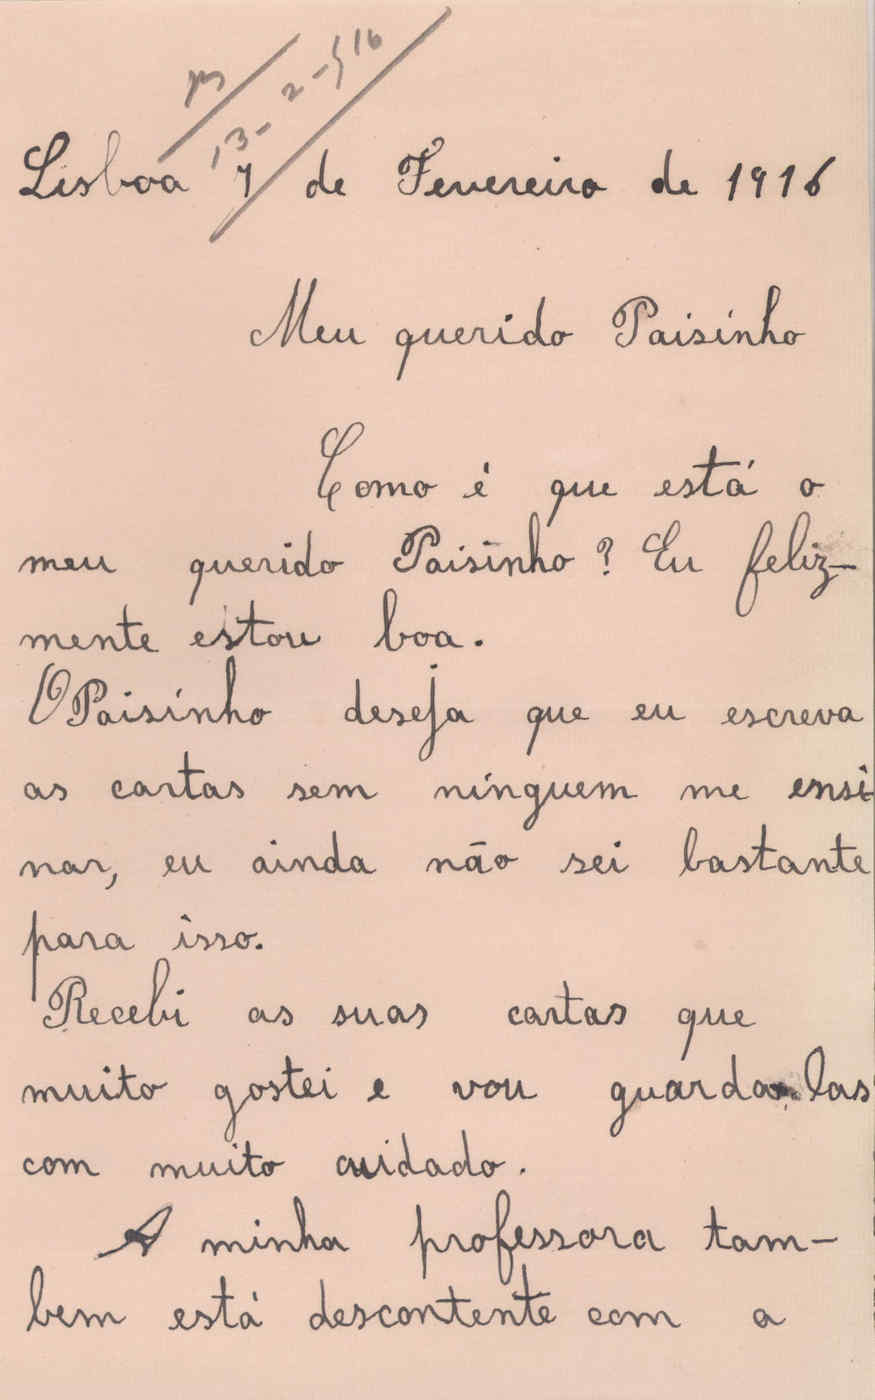 13-2-916
Lisboa 7 de Fevereiro de 1916
Meu querido Paisinho
Como é que está o
meu querido Paisinho? Eu feliz-
mente estou boa.
O Paisinho deseja que eu escreva
as cartas sem ninguem me ensi-
nar, eu ainda não sei bastante
para isso.
Recebi as suas cartas que
muito gostei e vou guarda-las
com muito cuidado.
A minha professora tam-
bem está descontente com a